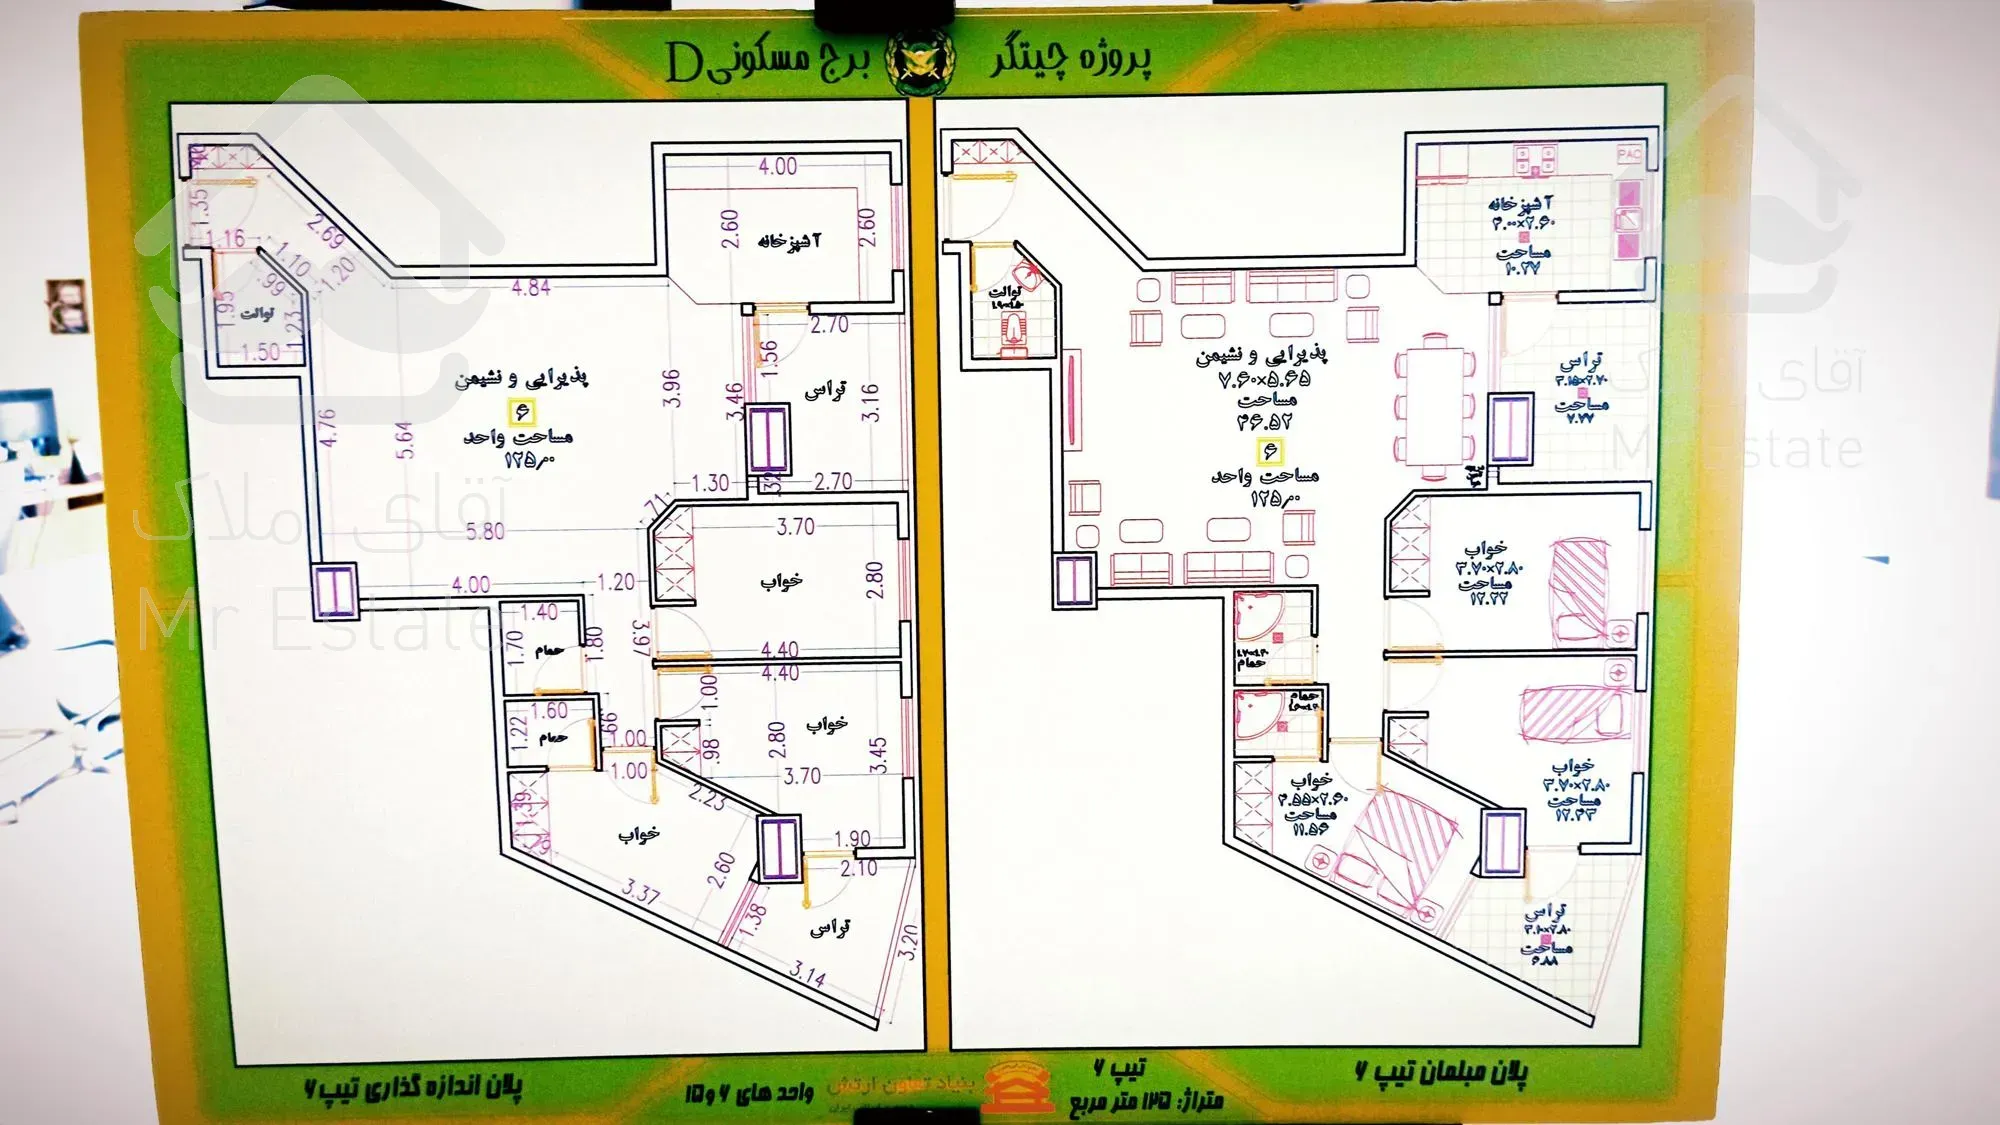 پروژه چیتگر برج مسکونی D
4.00
2.60
2.60
آشپزخانه
1.35
1.16
2.69
1.10
1.20
.99
1.95
توالت
1.23
1.50
4.84
2.70
1.56
3.96
3.46
تراس
3.16
پذیرایی و نشیمن
۶
مساحت واحد
۱۲۵٫۰۰
4.76
5.64
1.30
.32
2.70
.71
5.80
3.70
خواب
2.80
4.00
1.20
1.40
1.70
حمام
1.80
3.97
4.40
4.40
1.00
1.60
1.22
حمام
.66
1.00
1.00
.98
2.80
خواب
3.45
3.70
2.23
1.39
.79
خواب
2.60
3.37
1.90
2.10
1.38
تراس
3.20
3.14
آشپزخانه
۴.۰۰×۲.۶۰
مساحت
۱۰.۲۷
PAC
توالت
پذیرایی و نشیمن
۷.۶۰×۵.۶۵
مساحت
۴۶.۵۲
۶
مساحت واحد
۱۲۵٫۰۰
تراس
۳.۱۵×۲.۷۰
مساحت
۷.۷۷
خواب
۳.۷۰×۲.۸۰
مساحت
۱۲.۲۲
حمام
حمام
خواب
۳.۷۰×۲.۸۰
مساحت
۱۲.۴۳
خواب
۴.۵۵×۲.۶۰
مساحت
۱۱.۵۶
تراس
۳.۱۰×۲.۸۰
مساحت
۶.۸۸
پلان مبلمان تیپ ۶
تیپ ۶
متراژ: ۱۲۵ متر مربع
بنیاد تعاون ارتش
واحد های ۶ و ۱۵
پلان اندازه گذاری تیپ ۶
آقای املاک
Mr Estate
آقای املاک
Mr Estate